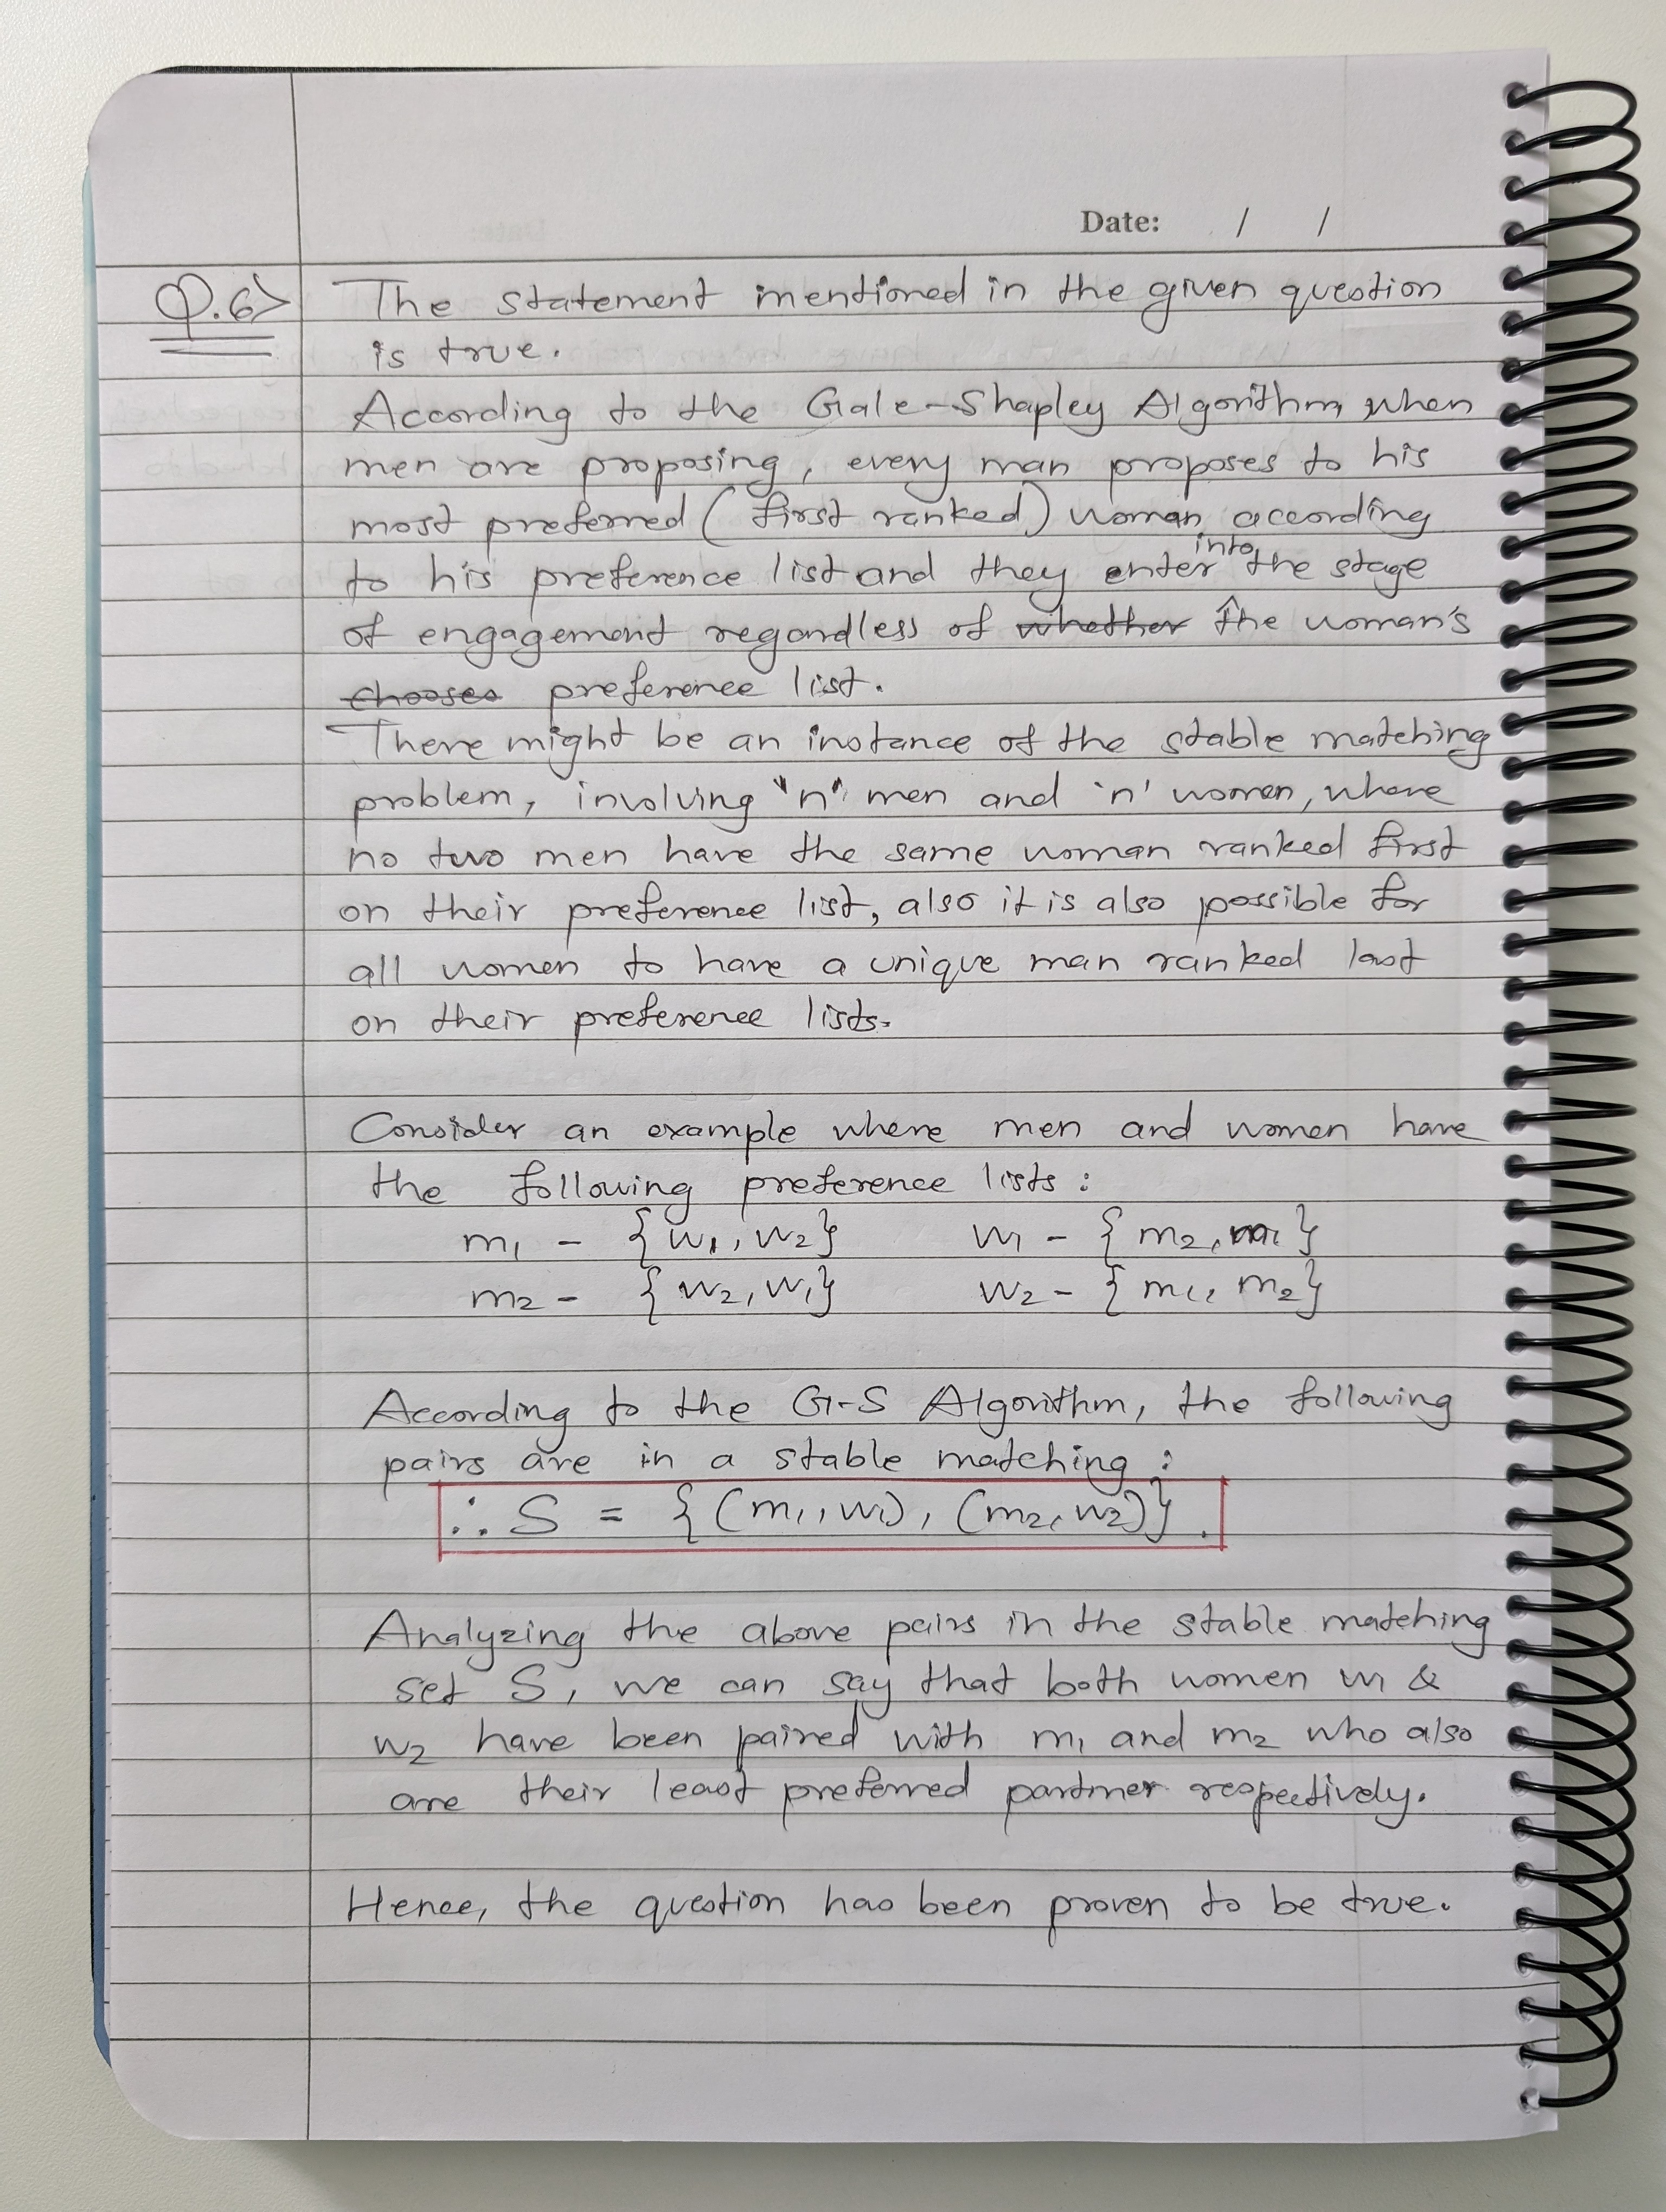 Date: / /
Q.6> The statement mentioned in the given question
is true.
According to the Gale-Shapley Algorithm, when
men are proposing, every man proposes to his
most preferred (first ranked) woman according
to his preference list and they enter into the stage
of engagement regardless of whether the woman's
chooses preference list.
There might be an instance of the stable matching
problem, involving "n" men and 'n' women, where
no two men have the same woman ranked first
on their preference list, also it is also possible for
all women to have a unique man ranked last
on their preference lists.
Consider an example where men and women have
the following preference lists :
m1 - {w1, w2} w1 - {m2, m1}
m2 - {w2, w1} w2 - {m1, m2}
According to the G-S Algorithm, the following
pairs are in a stable matching :
∴ S = {(m1, w1), (m2, w2)}.
Analyzing the above pairs in the stable matching
set S, we can say that both women w1 &
w2 have been paired with m1 and m2 who also
are their least preferred partner respectively.
Hence, the question has been proven to be true.